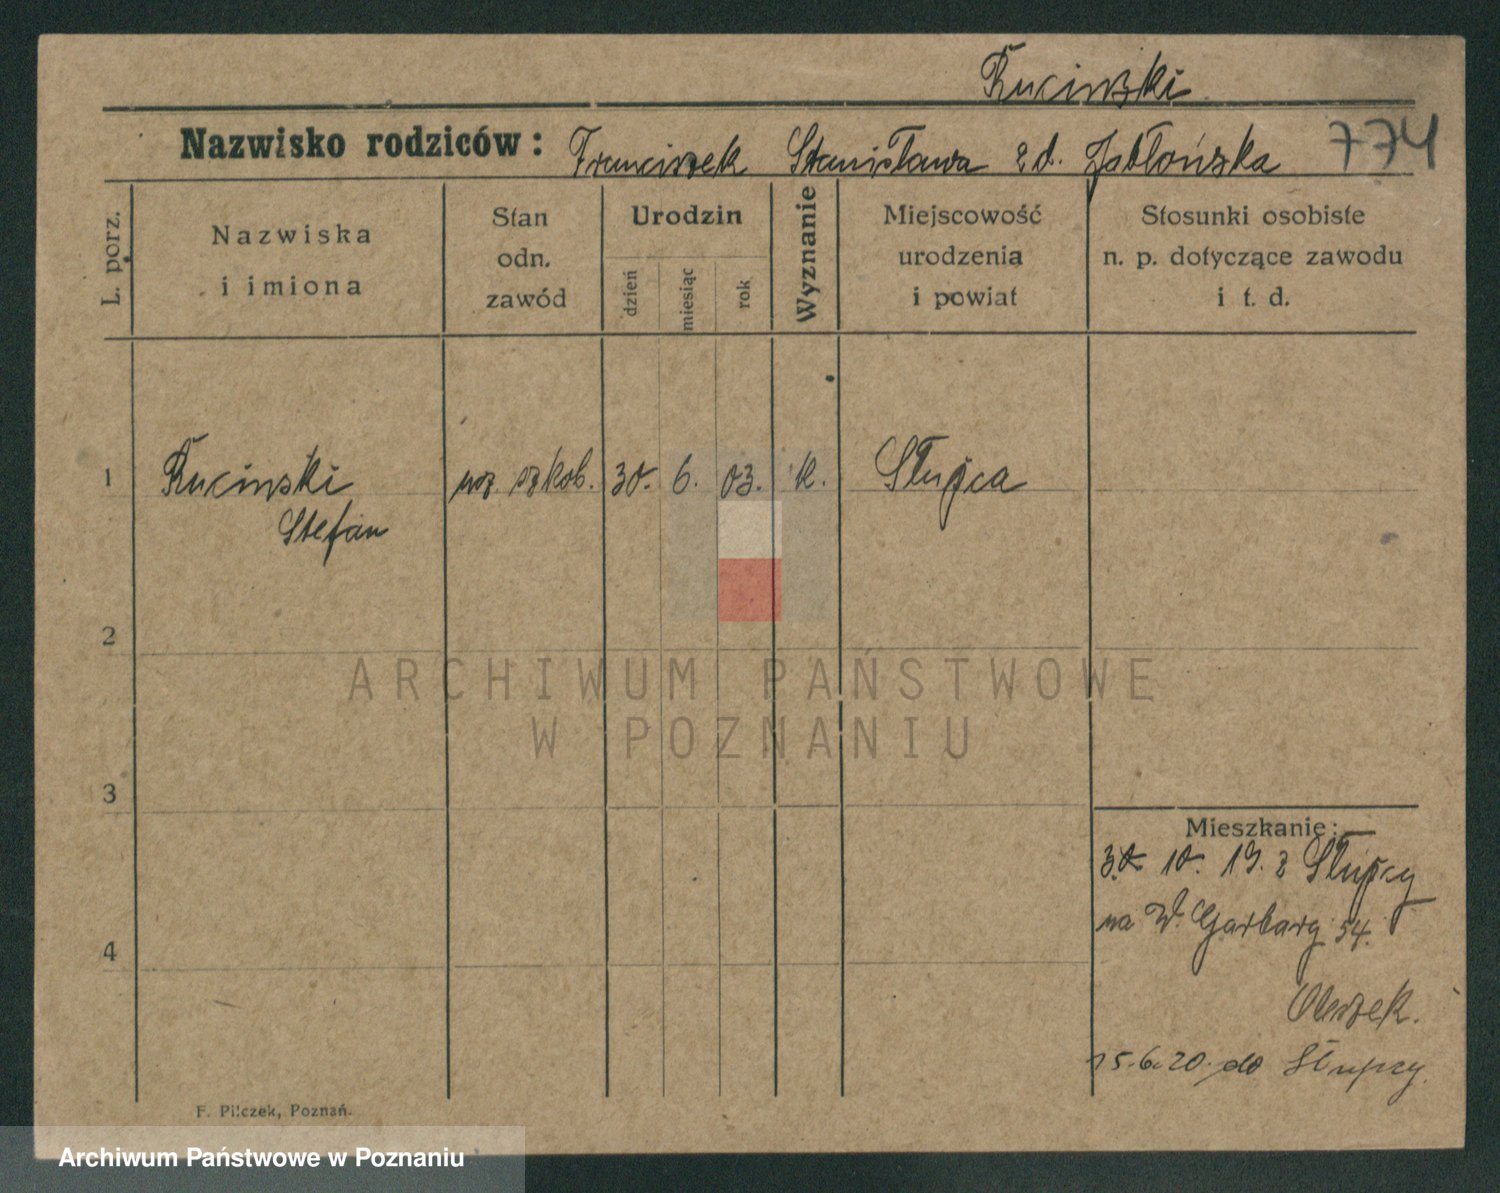 Ruciński
Nazwisko rodziców: Franciszek Stanisława z d. Jabłońska 774
L. porz.
Nazwiska
i imiona
Stan
odn.
zawód
Urodzin
dzień
miesiąc
rok
Wyznanie
Miejscowość
urodzenia
i powiat
Stosunki osobiste
n. p. dotyczące zawodu
i t. d.
1 Ruciński ucz. szkol. 30. 6. 03. k. Słupca
Stefan
2
ARCHIWUM PAŃSTWOWE
W POZNANIU
3
Mieszkanie:
30. 10. 19. z Słupcy
na W. Garbary 54.
4
15.6.20. do Słupcy
F. Pilczek, Poznań.
Archiwum Państwowe w Poznaniu